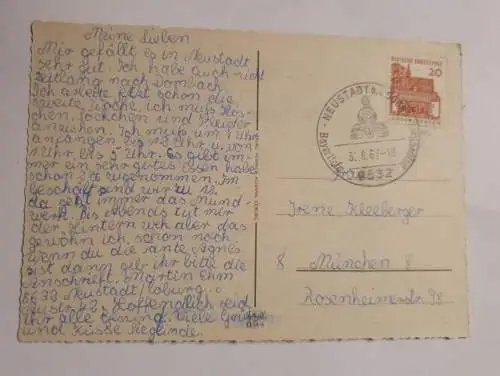 Meine Lieben
Mir gefällt es in Neustadt
sehr gut. Ich habe auch nicht
zeitlang nach
Ich arbeite jetzt schon die
zweite Woche, ich muß Hös-
chen, Söckchen und Kleider
anziehen. Ich muß um 7 Uhr
anfangen bis 12 Uhr u. von
1 Uhr bis 5 Uhr. Es gibt im-
mer ein sehr gutes Essen habe
schon 3 ℔ zugenommen. Im
Geschäft sind wir zu 12.
da geht immer das Mund-
werk. Bis Abends tut mir
der Hintern weh aber das
gewöhn ich schon noch
Wenn du die Tante Agnes
ist dann gib ihr bitte die
Anschrift. Martin Ehm
8632 Neustadt/Coburg
42. Hoffendlich seid
ihr alle gesund. Viele Grüße
und Küsse Sieglinde.
DEUTSCHE BUNDESPOST
20
NEUSTADT b.
Bayerische
6.67-18
8632
Irene Kleeberger
8 München 8
Rosenheimerstr. 98